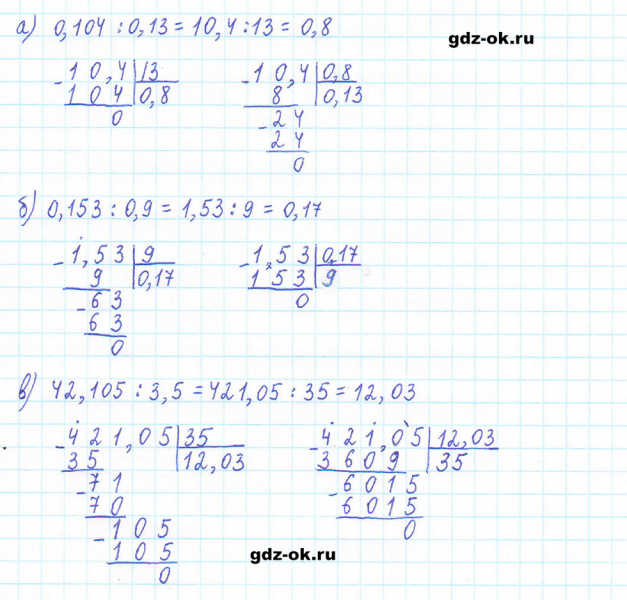 а) 0,104 : 0,13 = 10,4 : 13 = 0,8
gdz-ok.ru
- 10,4 | 13
104 | 0,8
0
- 10,4 | 0,8
8 | 0,13
- 24
24
0
б) 0,153 : 0,9 = 1,53 : 9 = 0,17
- 1,53 | 9
9 | 0,17
- 63
63
0
- 1,53 | 0,17
153 | 9
0
в) 42,105 : 3,5 = 421,05 : 35 = 12,03
- 421,05 | 35
35 | 12,03
- 71
70
- 105
105
0
- 421,05 | 12,03
3609 | 35
- 6015
6015
0
gdz-ok.ru